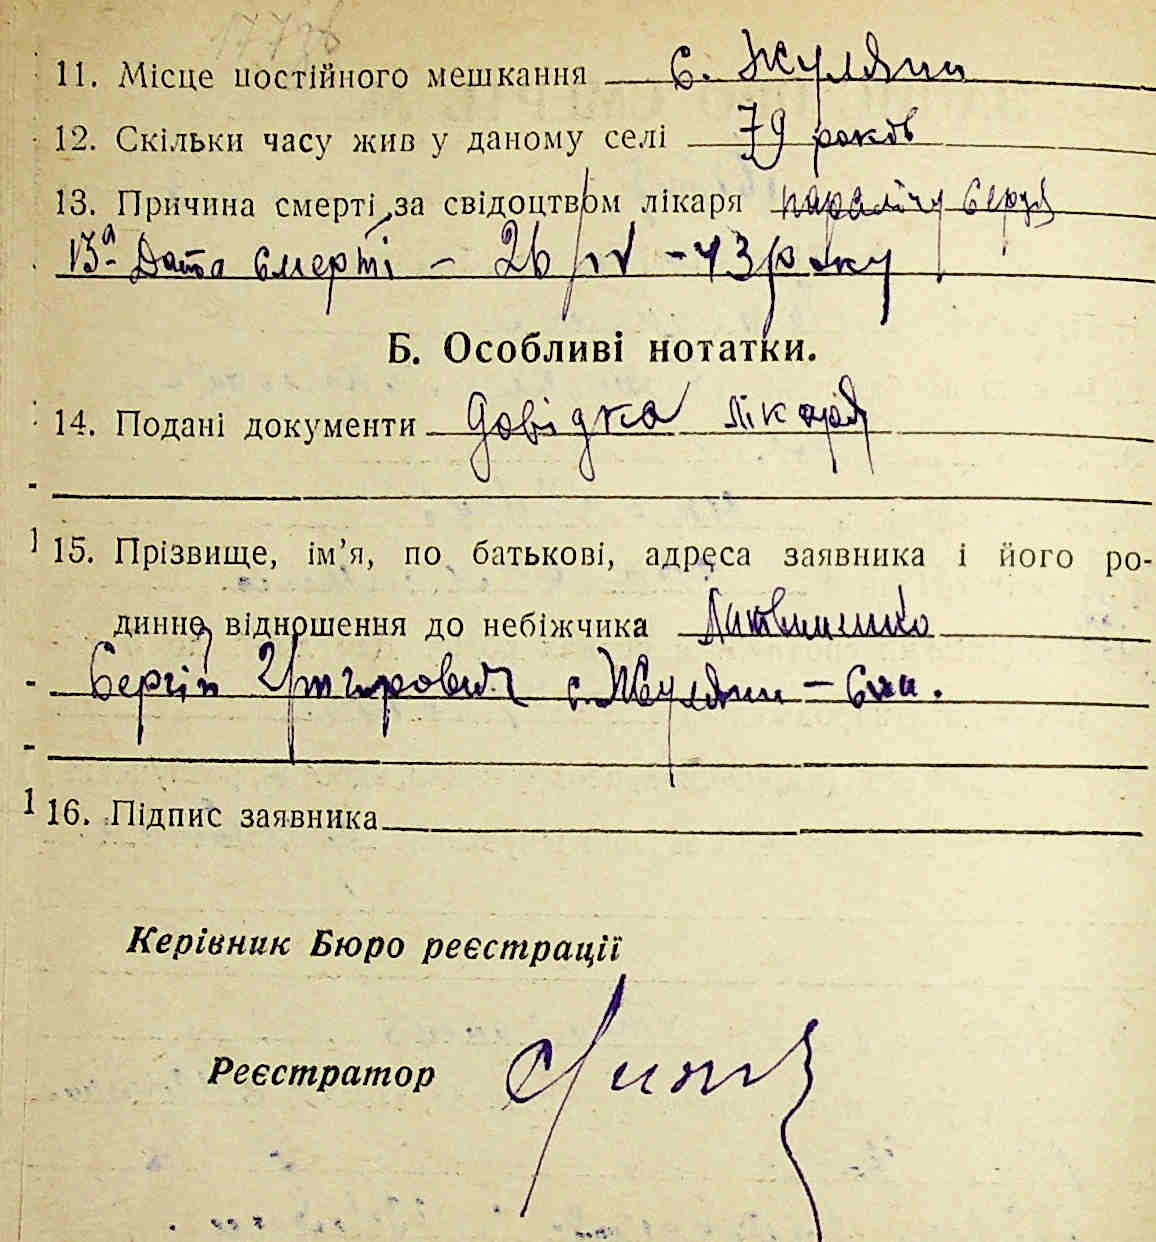 11. Місце постійного мешкання с. Жуляни
12. Скільки часу жив у даному селі 79 років
13. Причина смерті, за свідоцтвом лікаря параліч серця
13а Дата смерті – 26/IV – 43 року
Б. Особливі нотатки.
14. Подані документи Довідка лікаря
15. Прізвище, ім’я, по батькові, адреса заявника і його ро-
динне відношення до небіжчика Литвиненко
Сергій Григорович с. Жуляни – син.
16. Підпис заявника
Керівник Бюро реєстрації
Реєстратор